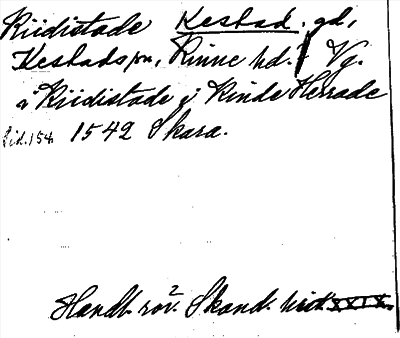 Riidistade Kestad. gd,
Kestads sn, Kinne hd. Vg.
a Riidistade i Kinde Herrade
Sid. 154. 1542 Skara.
Handl. rör. Skand. hist. XXIX.